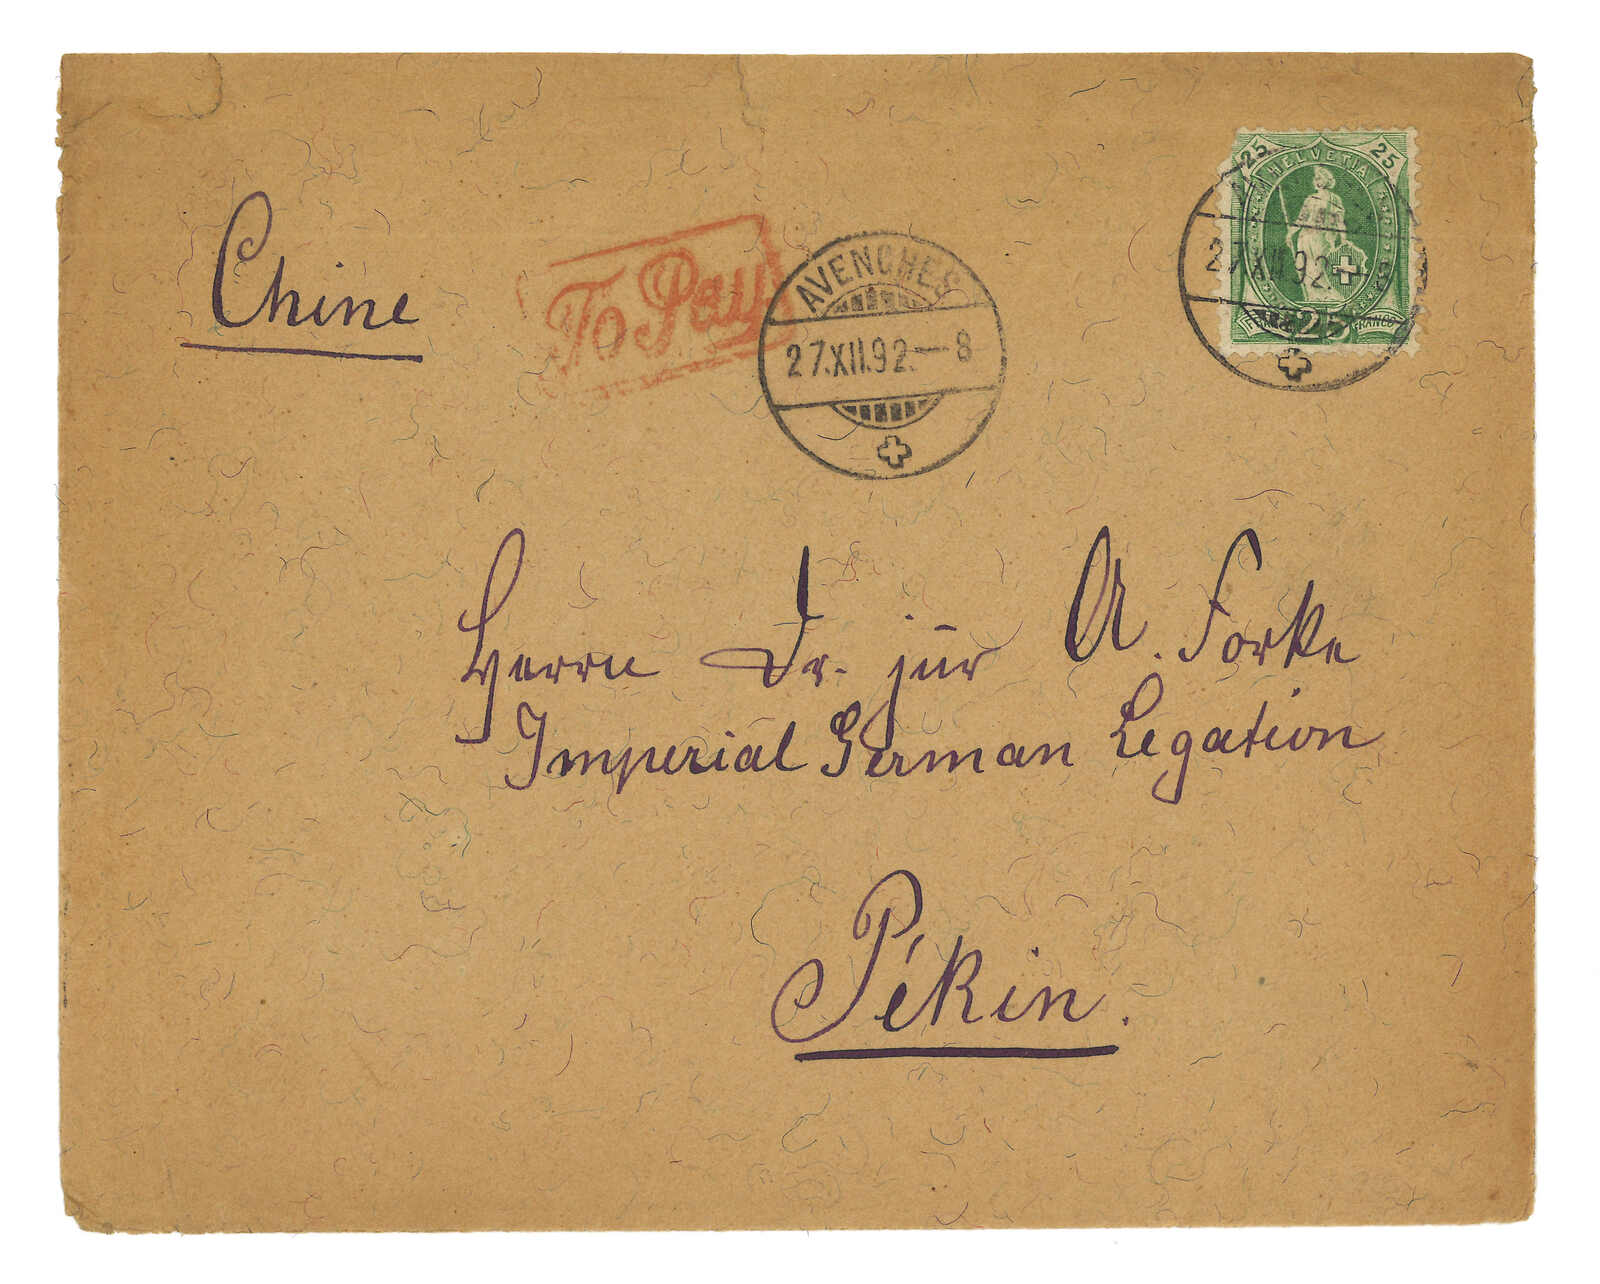 25 HELVETIA 25
FRANCO 25 FRANCO
27.XII.92.-8
Chine
To Pay
AVENCHES
27.XII.92.-8
Herrn Dr. jur A. Forke
Imperial German Legation
Pékin.